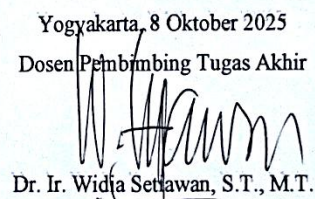 Yogyakarta, 8 Oktober 2025
Dosen Pembimbing Tugas Akhir
Dr. Ir. Widja Setiawan, S.T., M.T.